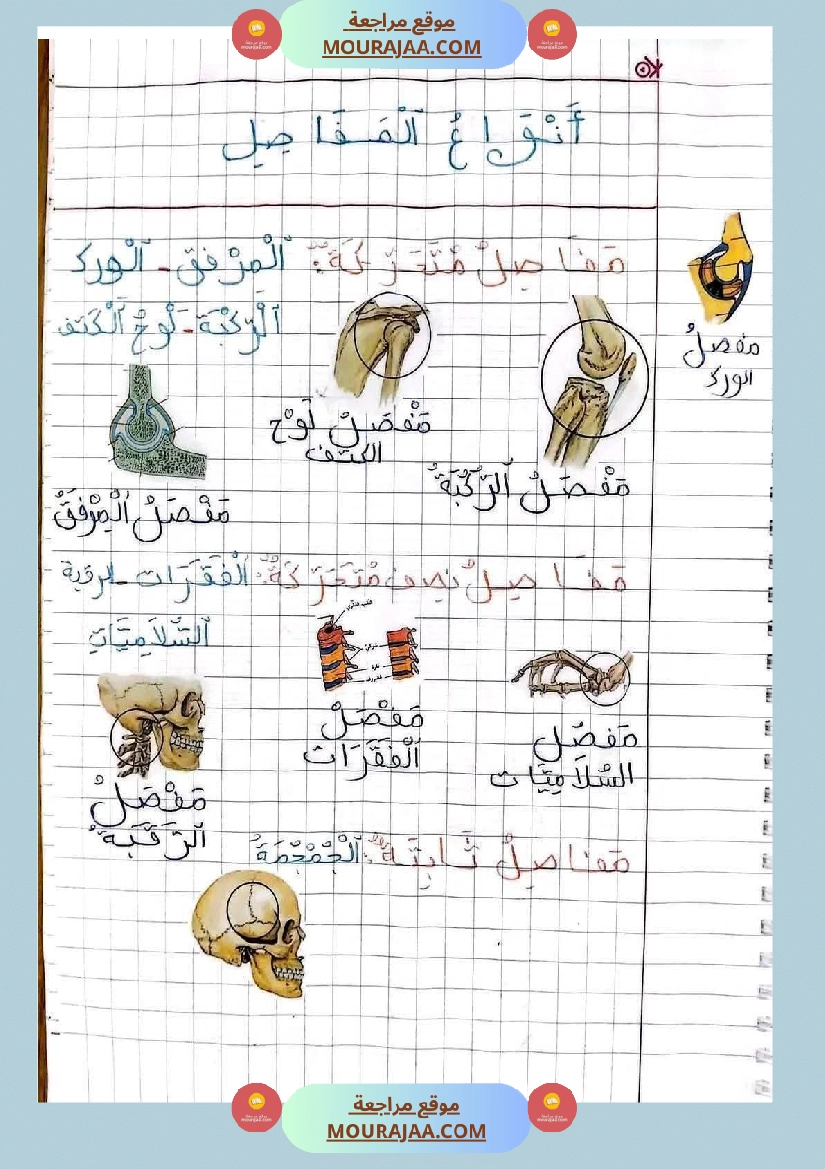 موقع مراجعة
MOURAJAA.COM
أَنْوَاعُ ٱلْمَفَاصِلِ
مَفَاصِلٌ مُتَحَرِّكَةٌ: ٱلْمِرْفَق - ٱلْوِرك
ٱلرُّكْبَة - لَوْحُ ٱلْكَتِف
مفصلُ
الورك
مَفْصَلُ لَوْح
الكتف
مَفْصَلُ ٱلرُّكْبَةِ
مَفْصَلُ ٱلْمِرْفَقِ
مَفَاصِلٌ نِصف مُتَحَرِّكَةٌ: ٱلْفَقَرَات - الرقبة
ٱلسُّلَامِيَّاتِ
مَفْصَلُ
ٱلْفَقَرَات
مَفصَلُ
السُّلَامِيَّات
مَفْصَلُ
ٱلرَّقَبَةِ
مَفَاصِلٌ ثَابِتَةٌ: ٱلْجُمْجُمَةُ
موقع مراجعة
MOURAJAA.COM